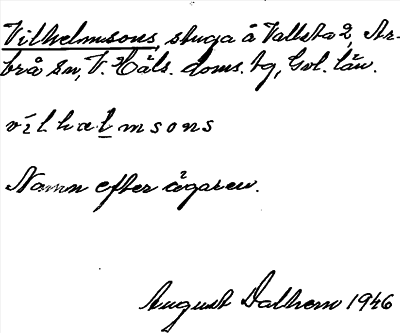 Vilhelmsons, stuga å Vallsta 2, Ar-
brå sn, V. Häls. doms. tg, Gvl. län.
vilhælmsons
Namn efter ägaren.
August Dalhem 1946